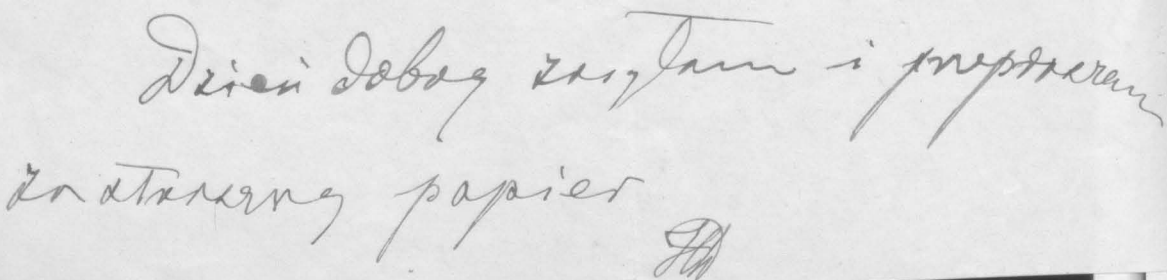 Dzień dobry zasyłam i przepraszam
za straszny papier